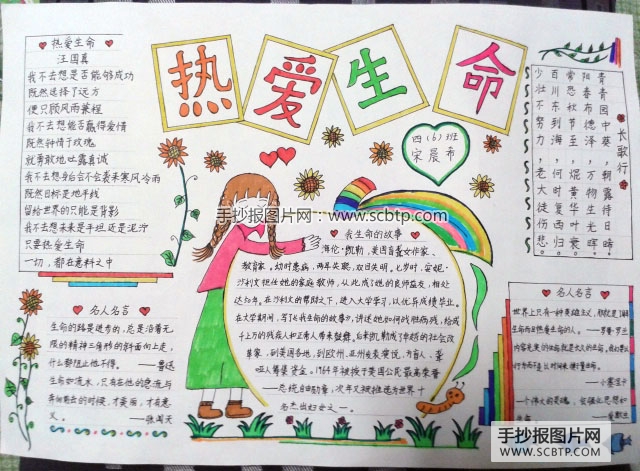 热爱生命
♥ 热爱生命 ♥
汪国真
我不去想是否能够成功
既然选择了远方
便只顾风雨兼程
我不去想能否赢得爱情
既然钟情于玫瑰
就勇敢地吐露真诚
我不去想身后会不会袭来寒风冷雨
既然目标是地平线
留给世界的只能是背影
我不去想未来是平坦还是泥泞
只要热爱生命
一切，都在意料之中
四(6)班
宋晨希
长歌行
青青园中葵，朝露待日晞
阳春布德泽，万物生光晖
常恐秋节至，焜黄华叶衰
百川东到海，何时复西归
少壮不努力，老大徒伤悲
手抄报图片网:www.scbtp.com
我生命的故事
海伦·凯勒，美国盲聋女作家、
教育家。幼时患病，两耳失聪，双目失明。七岁时，安妮·
沙利文担任她的家庭教师，从此成了她的良师益友，相处
达50年。在沙利文的帮助下，进入大学学习，以优异成绩毕业。
在大学期间，写了《我生命的故事》，讲述她如何战胜病残，给成
千上万的残疾人和正常人带来鼓舞。
到美国各地，到欧洲、亚洲发表演说，为盲人、聋
哑人筹集资金。1964年被授予美国公民最高荣誉
——总统自由勋章，次年又被推选为世界十
名杰出妇女之一。
♥ 名人名言 ♥
生命的路是进步的，总是沿着无
限的精神三角形的斜面向上走，
什么都阻止他不得。——鲁迅
生命如流水，只有在他的急流与
奔向前去的时候，才美丽，才有意
义。——张闻天
♥ 名人名言 ♥
世界上只有一种英雄主义，那就是了解
生命而且热爱生命的人。——罗曼·罗兰
——小塞涅卡
手抄报图片网
WWW.SCBTP.COM